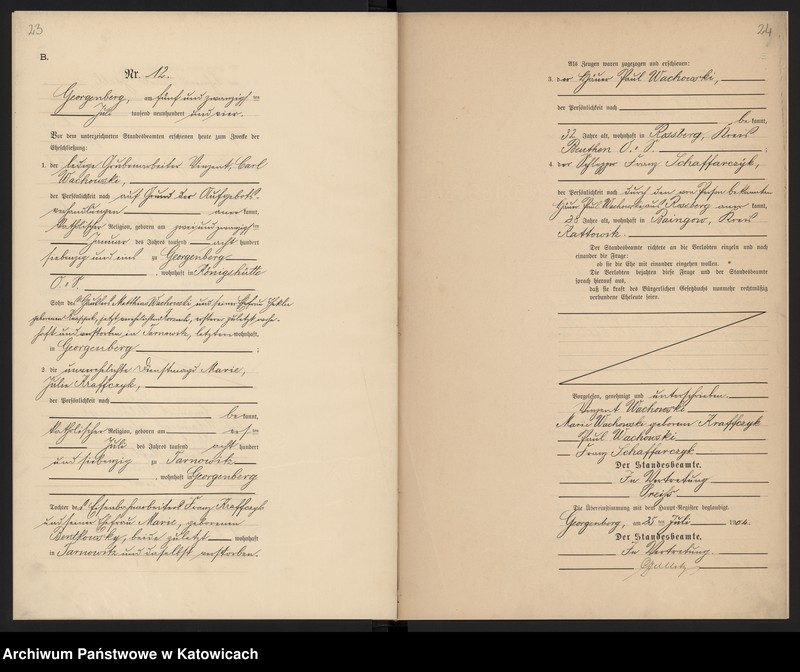 23
B.
Nr. 12.
Georgenberg, am fünf und zwanzigsten
Juli tausend neunhundert und vier.
Vor dem unterzeichneten Standesbeamten erschienen heute zum Zwecke der
Eheschließung:
1. der ledige Grubenarbeiter Vinzent, Carl
Wachowski,
der Persönlichkeit nach auf Grund der Aufgebots-
verhandlungen anerkannt,
katholischer Religion, geboren am zwei und zwanzigsten
Januar des Jahres tausend acht hundert
siebenzig und zu Georgenberg
, wohnhaft in Königshütte
O. S.
Sohn des Matthias Wachowski, und seiner Ehefrau
geborenen jetzt verehelichten ersterer zuletzt wohn-
haft und verstorben in Tarnowitz, letztere wohnhaft
in Georgenberg ;
2. die unverehelichte Dienstmagd Marie,
Julie Kraffczyk,
der Persönlichkeit nach
bekannt,
katholischer Religion, geboren am ersten
Juli des Jahres tausend acht hundert
und siebenzig zu Tarnowitz
, wohnhaft Georgenberg
Tochter des Eisenbahnarbeiters Franz Kraffczyk
und seiner Ehefrau Marie, geborenen
Bentkowsky, beide zuletzt wohnhaft
in Tarnowitz und daselbst verstorben.
24
Als Zeugen waren zugezogen und erschienen:
3. der Häuer Paul Wachowski,
der Persönlichkeit nach
bekannt,
32 Jahre alt, wohnhaft in Rossberg, Kreis
Beuthen O. S. ;
4. der Schlepper Franz Schaffarczyk,
der Persönlichkeit nach durch den von Person bekannten
Häuer Paul Wachowski aus Rossberg anerkannt,
28 Jahre alt, wohnhaft in Baingow, Kreis
Kattowitz.
Der Standesbeamte richtete an die Verlobten einzeln und nach
einander die Frage:
ob sie die Ehe mit einander eingehen wollen.
Die Verlobten bejahten diese Frage und der Standesbeamte
sprach hierauf aus,
daß sie kraft des Bürgerlichen Gesetzbuchs nunmehr rechtmäßig
verbundene Eheleute seien.
Vorgelesen, genehmigt und unterschrieben.
Vinzent Wachowski
Marie Wachowski geborene Kraffczyk
Paul Wachowski
Franz Schaffarczyk
Der Standesbeamte.
In Vertretung
Preiß
Die Übereinstimmung mit dem Haupt-Register beglaubigt.
Georgenberg, am 25 ten Juli 1904.
Der Standesbeamte.
In Vertretung.
Archiwum Państwowe w Katowicach